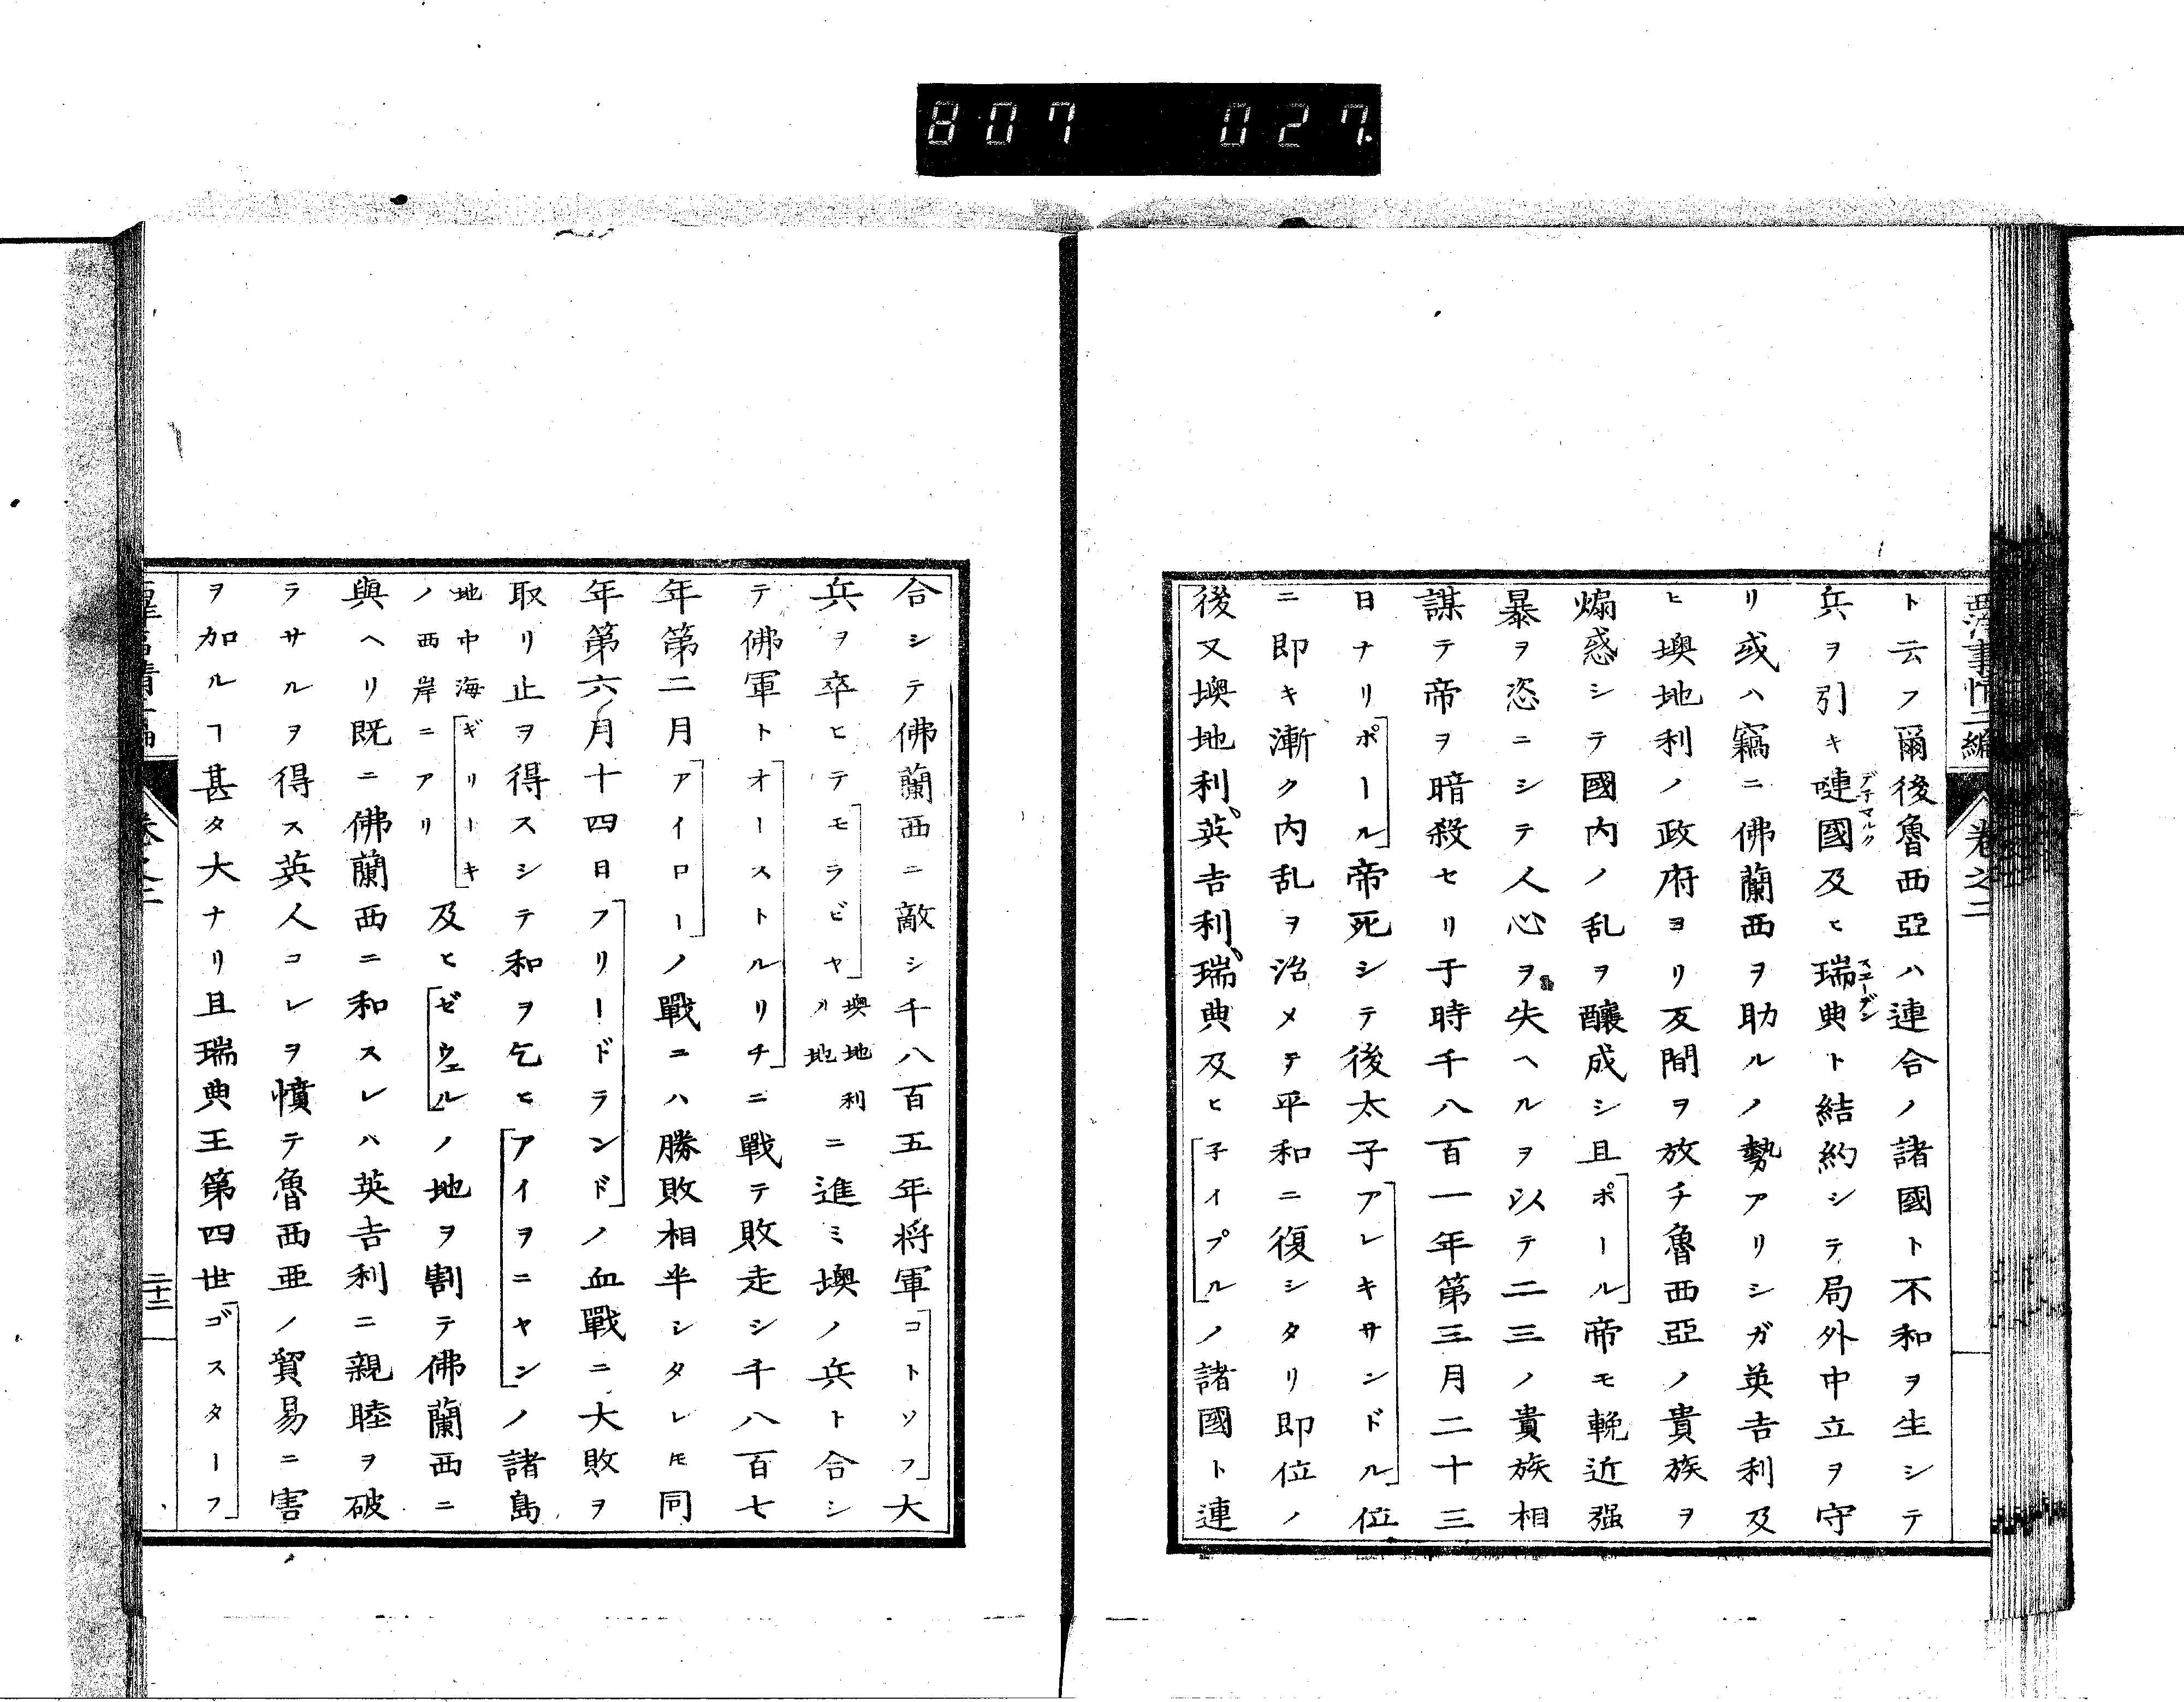 807 027
西洋事情二編
卷之二
ト云フ爾後魯西亞ハ連合ノ諸國ト不和ヲ生シテ
兵ヲ引キ嗹國及ヒ瑞典ト結約シテ局外中立ヲ守
デ子マルク
スエーデン
リ或ハ竊ニ佛蘭西ヲ助ルノ勢アリシガ英吉利及
ヒ墺地利ノ政府ヨリ反間ヲ放チ魯西亞ノ貴族ヲ
煽惑シテ國内ノ乱ヲ釀成シ且「ポール」帝モ輓近强
暴ヲ恣ニシテ人心ヲ失ヘルヲ以テ二三ノ貴族相
謀テ帝ヲ暗殺セリ于時千八百一年第三月二十三
日ナリ「ポール」帝死シテ後太子「アレキサンドル」位
ニ即キ漸ク内乱ヲ治メテ平和ニ復シタリ即位ノ
後又墺地利、英吉利、瑞典及ヒ「子イプル」ノ諸國ト連
合シテ佛蘭西ニ敵シ千八百五年将軍「コトソフ」大
兵ヲ卒ヒテ「モラビヤ」墺地利ノ地ニ進ミ墺ノ兵ト合シ
テ佛軍ト「オーストルリチ」ニ戰テ敗走シ千八百七
年第二月「アイロー」ノ戰ニハ勝敗相半シタレ𪜈同
年第六月十四日「フリードランド」ノ血戰ニ大敗ヲ
取リ止ヲ得スシテ和ヲ乞ヒ「アイヲニヤン」ノ諸島
地中海「ギリーキ」ノ西岸ニアリ及ヒ「ゼウェル」ノ地ヲ割テ佛蘭西ニ
與ヘリ既ニ佛蘭西ニ和スレハ英吉利ニ親睦ヲ破
ラサルヲ得ス英人コレヲ憤テ魯西亜ノ貿易ニ害
ヲ加ルヿ甚タ大ナリ且瑞典王第四世「ゴスターフ」
卷之二
二十二